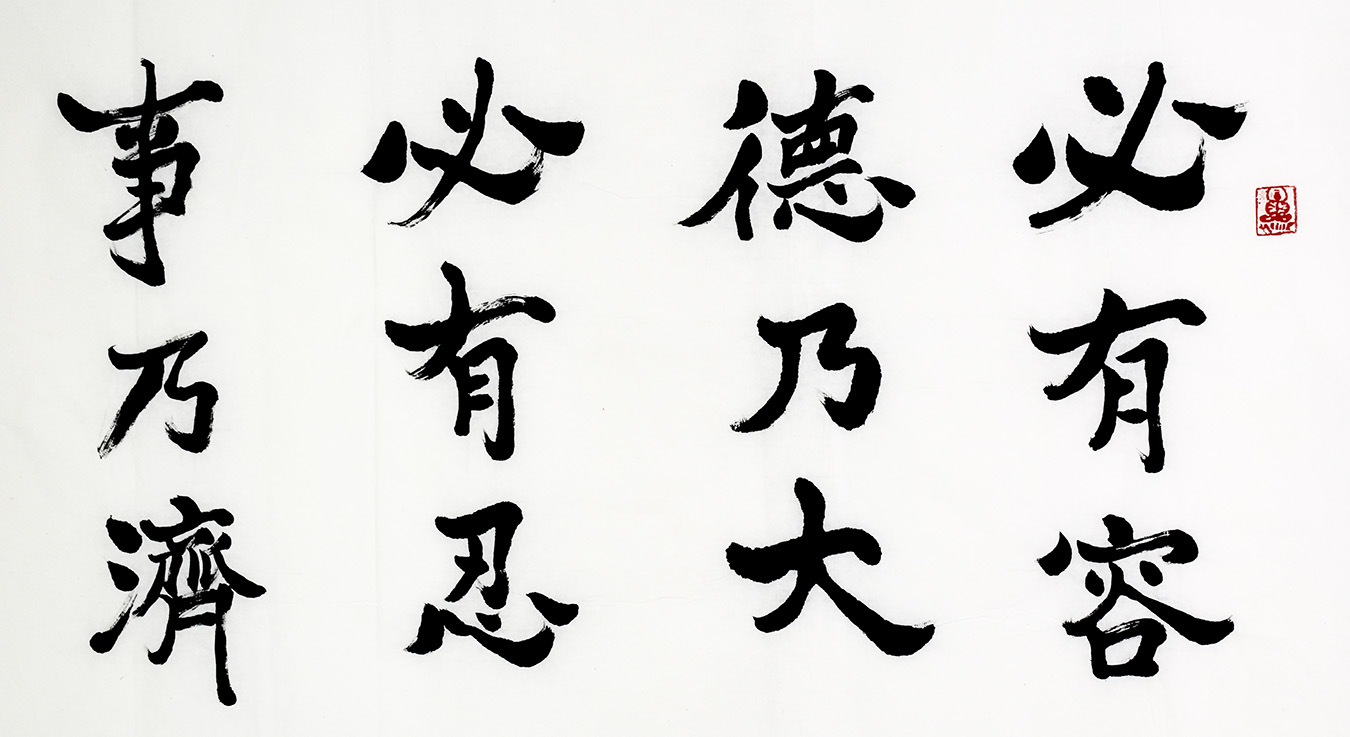 必有容
德乃大
必有忍
事乃濟